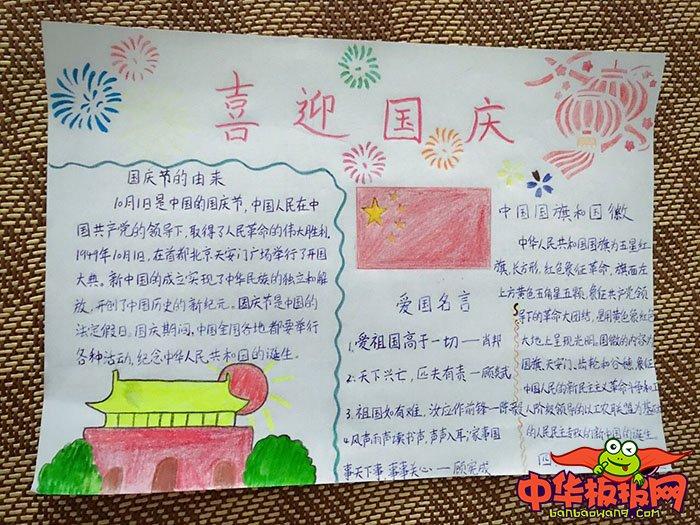 喜迎国庆
国庆节的由来
10月1日是中国的国庆节,中国人民在中
国共产党的领导下,取得了人民革命的伟大胜利.
1949年10月1日,在首都北京天安门广场举行了开国
大典。新中国的成立实现了中华民族的独立和解
放,开创了中国历史的新纪元。国庆节是中国的
法定假日。国庆期间,中国全国各地都要举行
各种活动,纪念中华人民共和国的诞生。
爱国名言
1.爱祖国高于一切——肖邦
2.天下兴亡,匹夫有责——顾炎武
3.祖国如有难,汝应作前锋——陈
4.风声雨声读书声,声声入耳;家事国
事天下事 事事关心——顾宪成
中国国旗和国徽
中华人民共和国国旗为五星红
旗,长方形,红色象征革命,旗面左
上方黄色五角星五颗,象征共产党领
导下的革命大团结,星用黄色象红
大地上呈现光明,国徽的内容为
国旗、天安门、齿轮和谷穗,象征
中国人民的新民主主义革命斗争和工
人阶级领导的以工农联盟为基础
的人民民主专政的新中国的诞生。
中华板报网
banbaowang.com